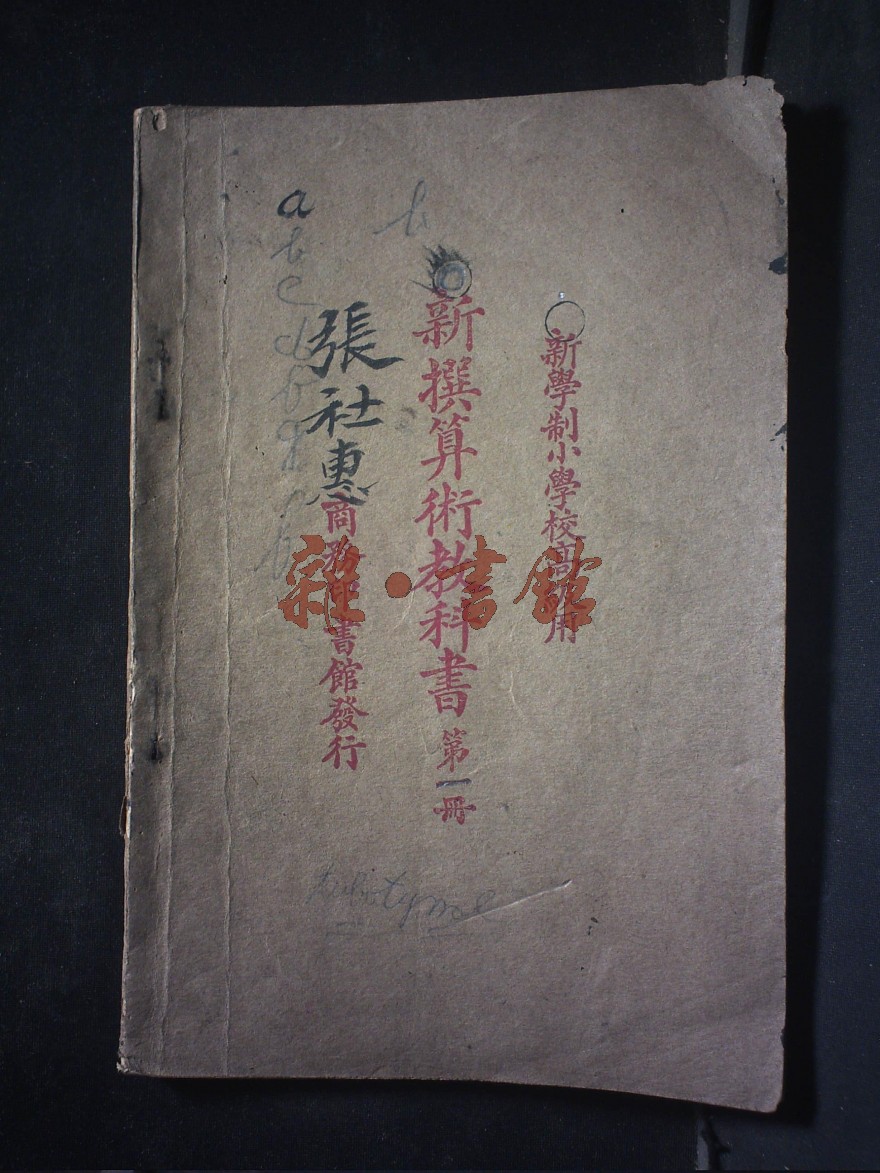 新學制小學校高級用
新撰算術教科書 第一冊
商務印書館發行
張社惠
雜·書館
a
b
c
d
b